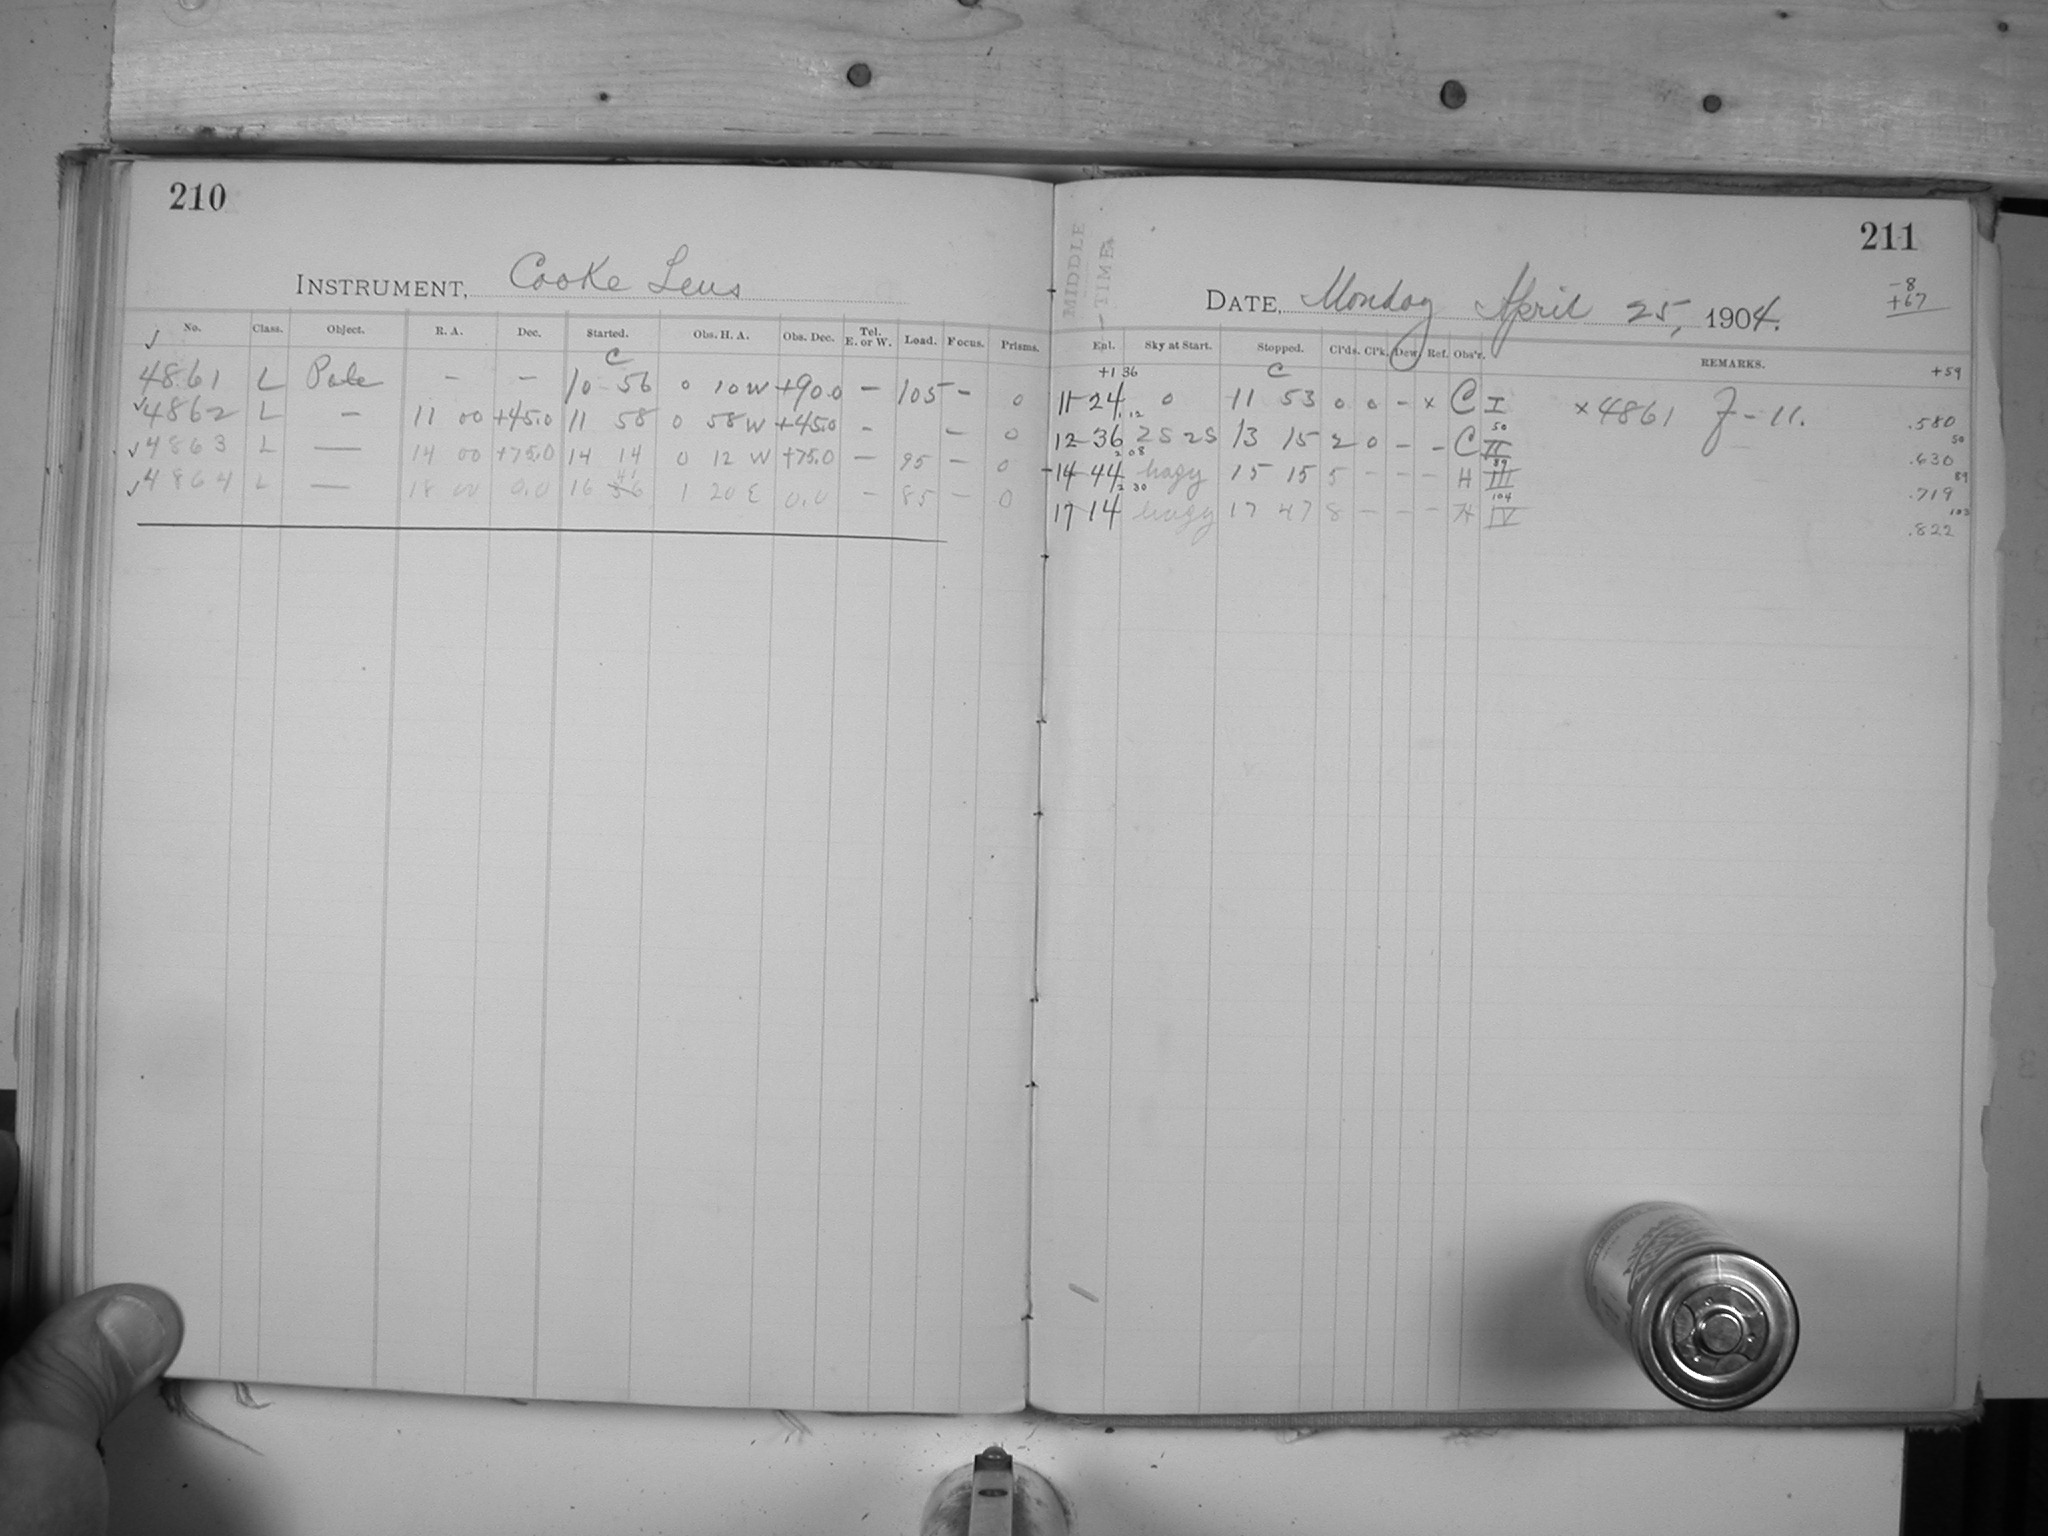 210
INSTRUMENT, Cooke Lens
No. Class. Object. R. A. Dec. Started. Obs. H. A. Obs. Dec. Tel. E. or W. Load. Focus. Prisms.
C
4861 L Pole – – 10 56 0 10 W +90.0 – 105 – 0
✓4862 L – 11 00 +45.0 11 58 0 58 W +45.0 – – 0
✓4863 L — 14 00 +75.0 14 14 0 12 W +75.0 – 95 – 0
✓4864 L — 18 00 0.0 16 46 1 20 E 0.0 – 85 – 0
211
MIDDLE
TIME
DATE, Monday April 25, 1904.
-8
+67
Enl. Sky at Start. Stopped. Cl'ds. Cl'k. Dew. Ref. Obs'r. REMARKS.
+1 36 C +59
11 24 0 11 53 0 0 – × C I ×4861 J – 11. .580
1 12 50 50
12 36 2S 2S 13 15 2 0 – – C II .630
2 08 89 89
14 44 hazy 15 15 5 – – – H III .719
2 30 104 103
17 14 hazy 17 47 8 – – – H IV .822